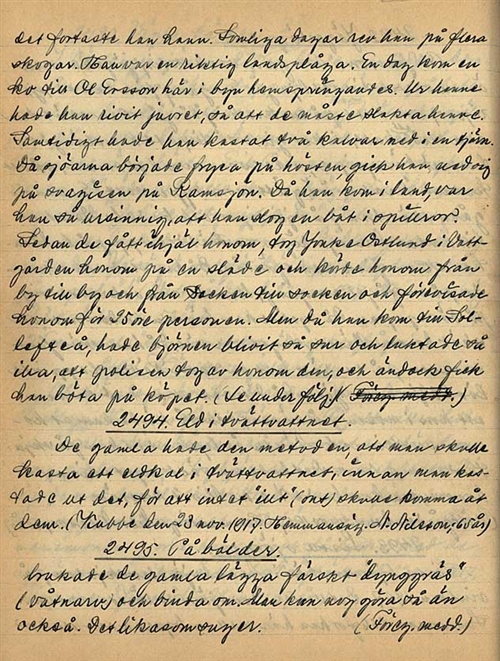 det fortaste han hann. Somliga dagar rev han på flera
skogar. Han var en riktig landsplåga. En dag kom en
ko till Ol Ersson här i byn hemspringandes. Ur henne
hade han rivit juvret, så att de måste slakta henne.
Samtidigt hade han kastat två kalvar ned i en tjärn.
Då sjöarna började frysa på hösten, gick han ned sig
på svagisen på Ramsjön. Då han kom i land, var
han så arsinnig, att han slog en båt i spillror.
Sedan de fått ihjäl honom, tog Östlund i
gården honom på en släde och körde honom från
by till by och från socken till socken och förevisade
honom för 25 öre personen. Men då han kom till Sol-
lefteå, hade björnen blivit så sur och luktade så
illa, att polisen tog av honom den, och ändock fick
han böta på köpet. (Se under följ.! Föreg. medd.)
2494. Eld i tvättvattnet.
De gamla hade den metoden, att man skulle
kasta ett eldkol i tvättvattnet, innan man kas-
tade ut det, för att intet "illt" (ont) skulle komma åt
dem. (Kubbe den 23 nov. 1917. Hemmansäg. N. Nilsson, 65 år)
2495. På bölder
brukade de gamla lägga färskt "dynggräs"
(våtnarv) och binda om. Man kan nog göra så än
också. Det likasom suger. (Föreg. medd.)